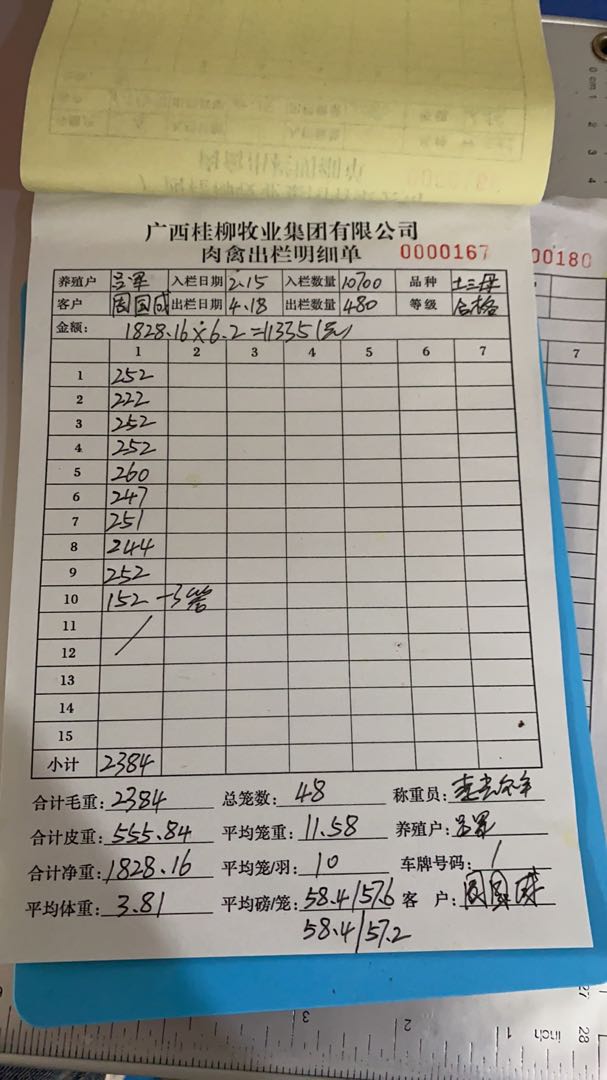 广西桂柳牧业集团有限公司
肉禽出栏明细单 0000167
00180
养殖户 入栏日期 2.15 入栏数量 10700 品种 土三母
客户 周国成 出栏日期 4.18 出栏数量 480 等级 合格
金额: 1828.16×6.2=11335(元)
1 2 3 4 5 6 7
7
1 252
2 222
3 252
4 252
5 260
6 247
7 251
8 244
9 252
10 152 -3笼
11
12
13
14
15
小计 2384
合计毛重: 2384 总笼数: 48 称重员:
合计皮重: 555.84 平均笼重: 11.58 养殖户:
合计净重: 1828.16 平均笼/羽: 10 车牌号码: /
平均体重: 3.81 平均磅/笼: 58.4/57.6 客 户: 周国成
58.4/57.2
0 cm 1
2
3
4
27
28
3
2
1
inch
6